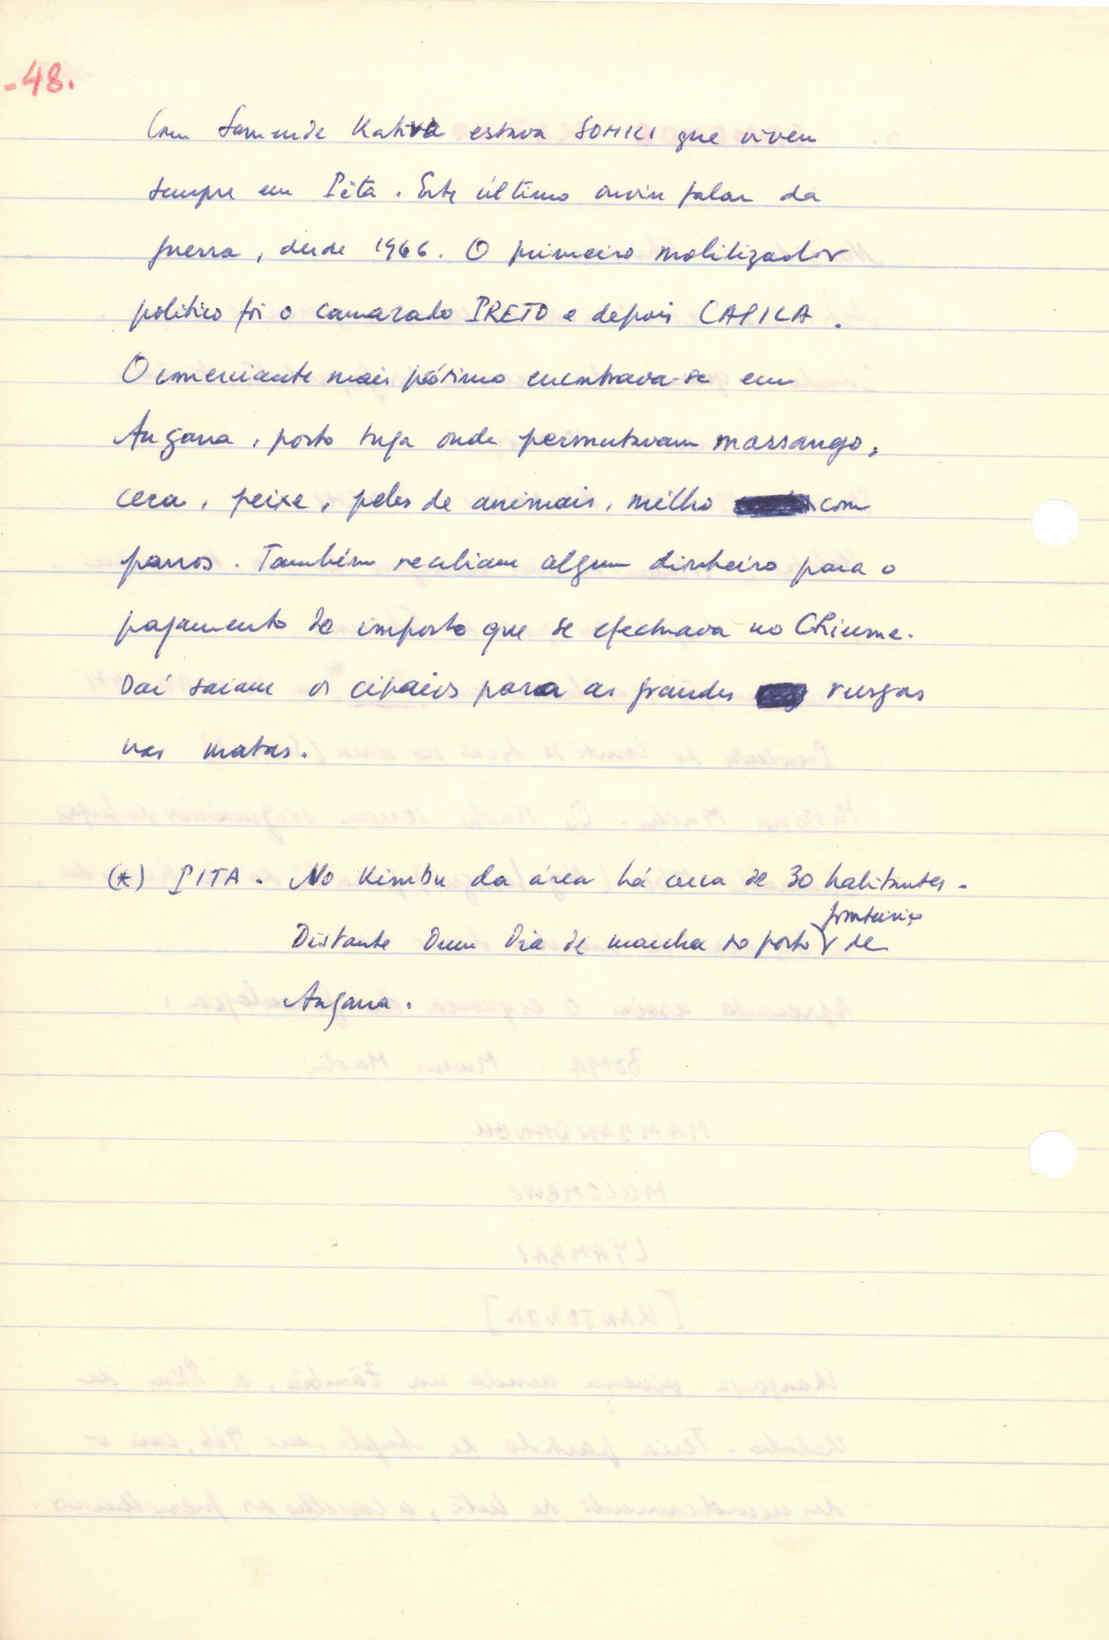 -48.
Com Samende Kativa estava SOMKI que viveu
sempre em Pita. Este último ouviu falar da
guerra, desde 1966. O primeiro mobilizador
politico foi o camarada PRETO e depois CAPILA.
O comerciante mais próximo encontrava-se em
Angana, posto tuga onde permutavam massango,
cera, peixe, peles de animais, milho com
panos. Também recebiam algum dinheiro para o
pagamento do imposto que se efectuava no Chiume.
Daí saiam os cipaios para as grandes rusgas
nas matas.
(*) PITA. No Kimbu da área há cerca de 30 habitantes.
fronteiriço
Distante dum dia de marcha do posto de
Angana.